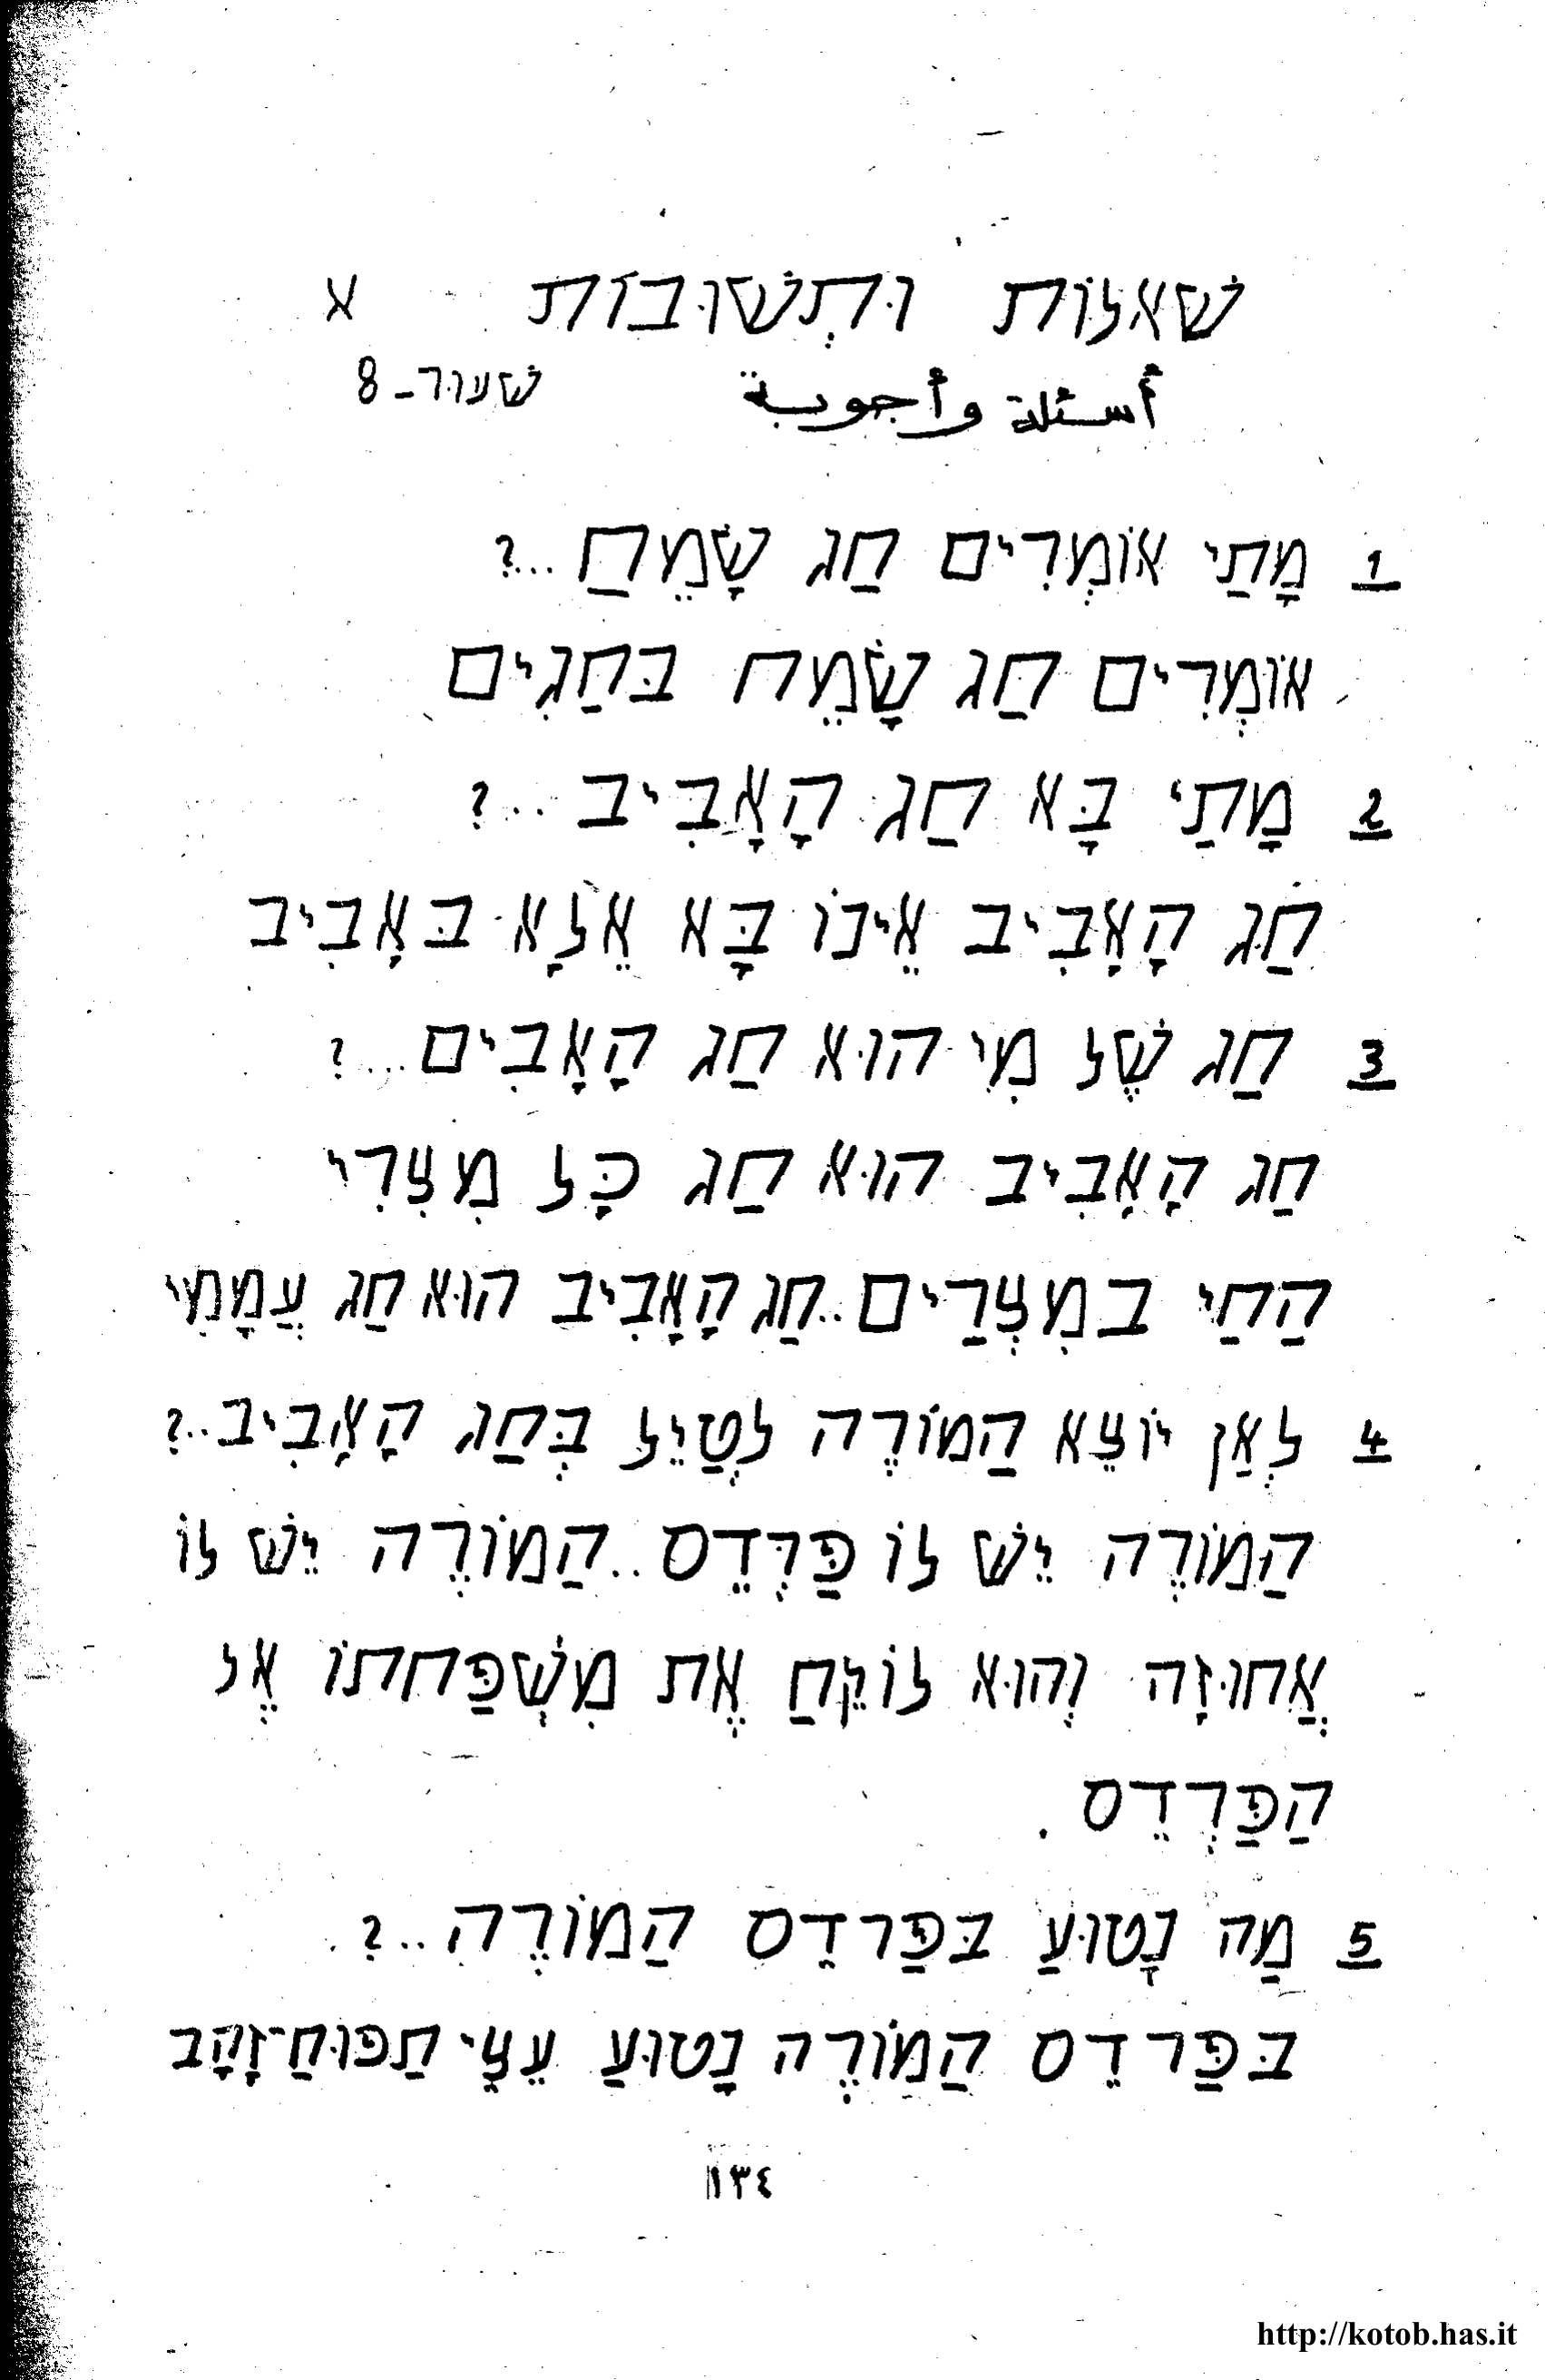 שׁאלוֹת וּתְשׁוּבוֹת א
أسئلة وأجوبة שׁעוּר - 8
1 מָתַי אוֹמְרִים חַג שָׂמֵחַ ...?
אוֹמְרִים חַג שָׂמֵח בּחַגִים
2 מָתַי בָּא חַג הָאָבִיב ...?
חַג הָאָבִיב אֵינוֹ בָּא אֵלָא בּאָבִיב
3 חַג שֶׁל מִי הוּא חַג הָאָבִים ...?
חַג הָאָבִיב הוּא חַג כָּל מִצְרִי
הַחַי במִצְרַיִם .. חַג הָאָבִיב הוּא חַג עֲמָמִי
4 לְאַן יוֹצֵא הַמוֹרֶה לְטַיֵל בְּחַג הָאָבִיב ..?
הַמוֹרֶה יֵשׁ לוֹ פַּרְדֵס .. הַמוֹרֶה יֵשׁ לוֹ
אֲחוּזָה וְהוּא לוֹקֵחַ אֶת מִשְׁפַּחתוֹ אֶל
הַפַּרְדֵס .
5 מַה נָטוּעַ בּפַּרדֵס הַמוֹרֶה ..?
בּפַּרדֵס הַמוֹרֶה נָטוּעַ עֵצֵי תַפּוּחַ־זָהָב
١٣٤
http://kotob.has.it